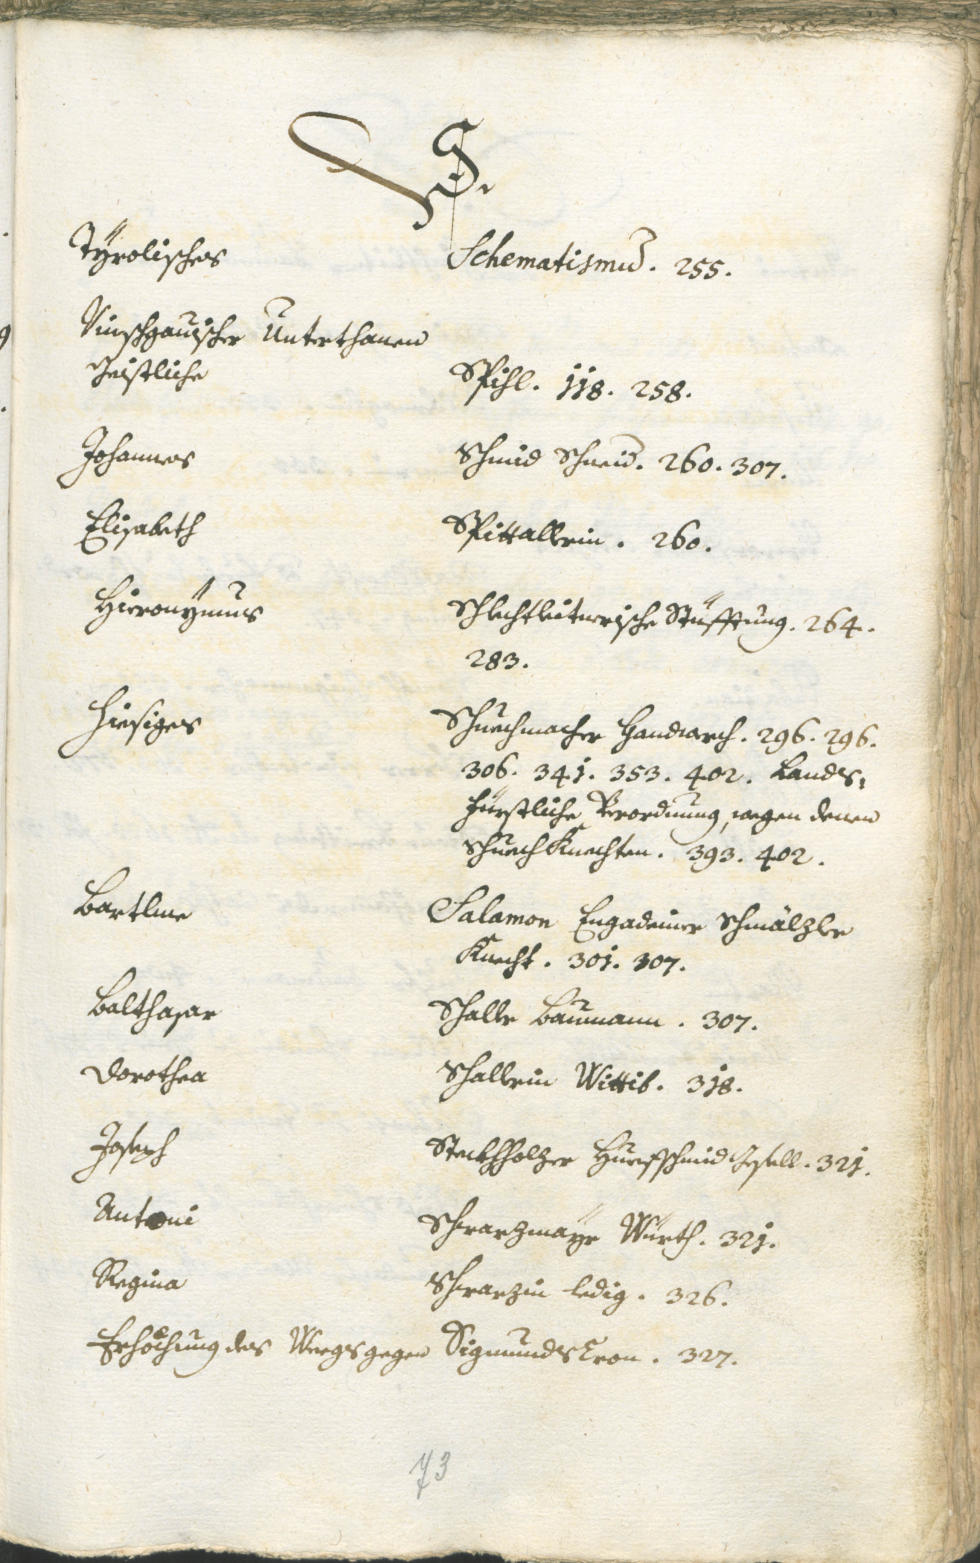 S.
Tÿrolisches Schematismus. 255.
Vinschgauischer Unterthanen
Geistliche Spihl. 118. 258.
Johannes Schmid Schneid. 260. 307.
Elisabeth Spittallerin. 260.
Hieronÿmus Schlechtleitnerische Stüfftung. 264.
283.
Hiesiges Schuechmacher Handwerch. 296. 296.
306. 341. 353. 402. Lands,
fürstliche Verordnung, wegen denen
Schuech Knechten. 393. 402.
Bartlme Salamon Engadeiner Schmälzler
Knecht. 301. 307.
Balthasar Schaller Baumann. 307.
Dorothea Schallerin Wittib. 318.
Joseph Steckhholzer Huefschmid Gesell. 321.
Antoni Schwarzmaÿr Würth. 321.
Regina Schwarzin ledig. 326.
Erhöchung des Weegs gegen Sigmundscron. 327.
73